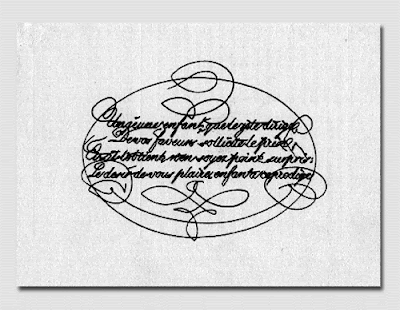 Un jeune enfant, que le zèle dirige,
De vos faveurs sollicite le prix,
Et s'il l'obtient n'en soyez point surpris:
Le desir de vous plaire, enfanta ce prodige